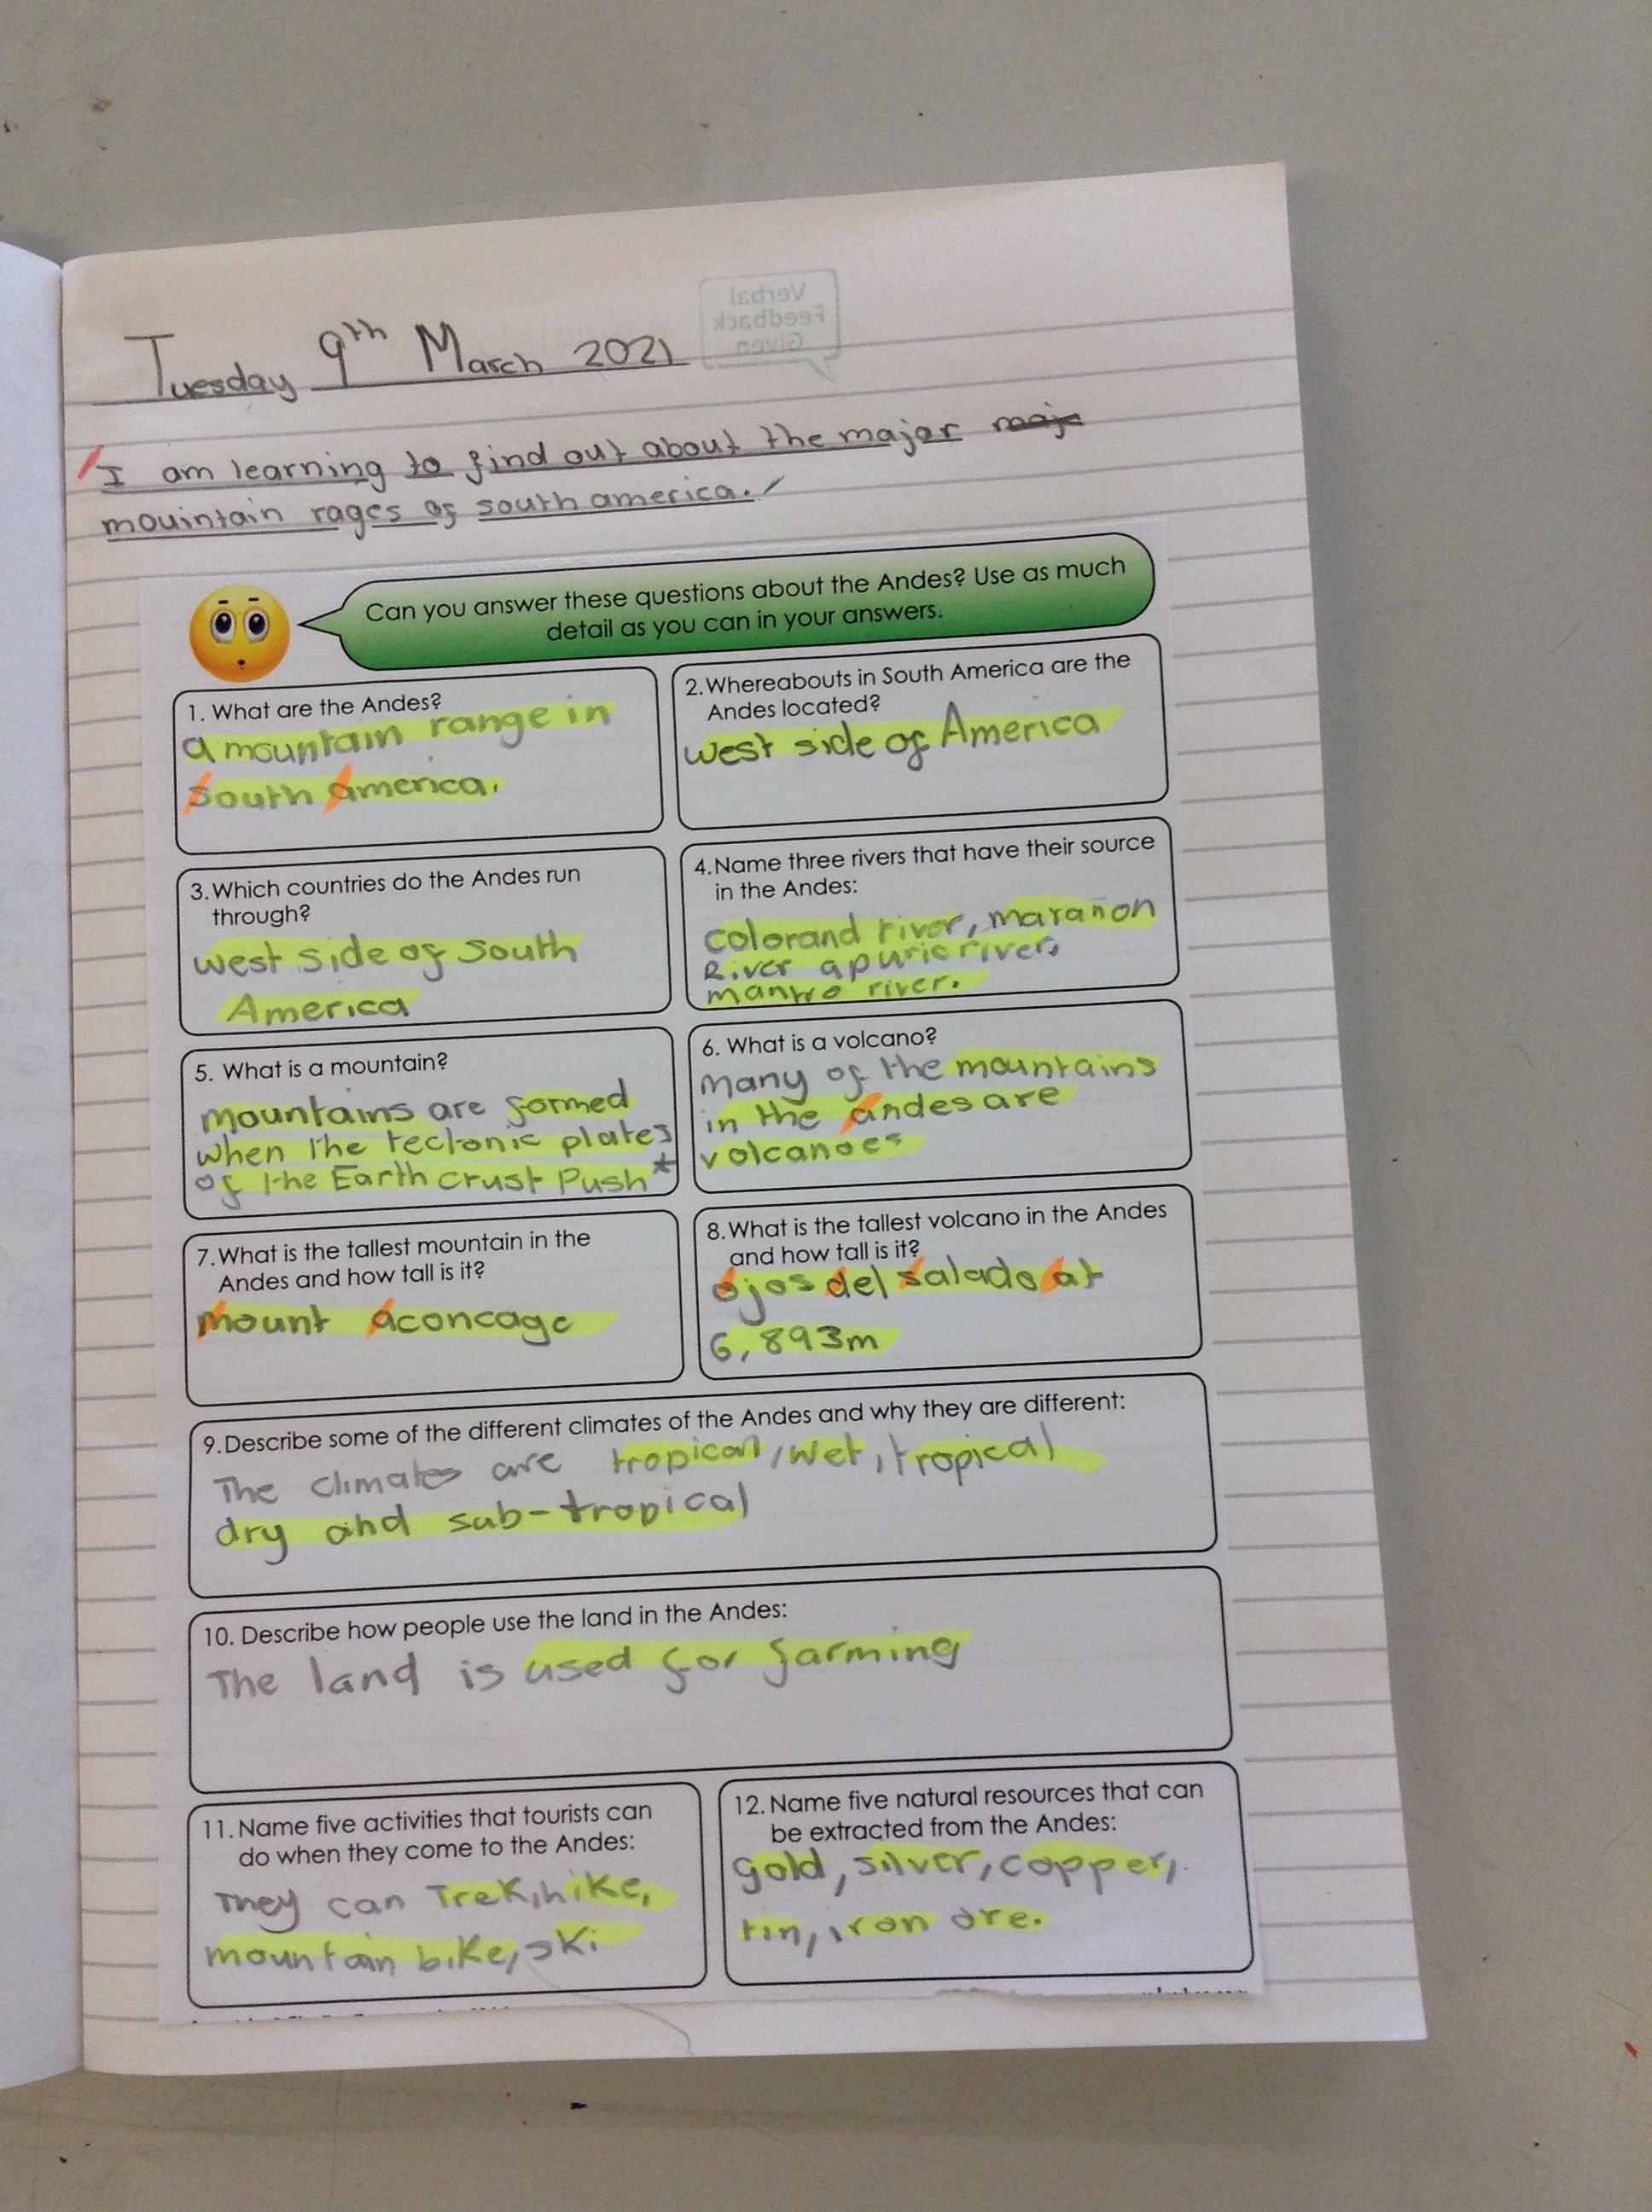 Verbal
Feedback
Given
Tuesday 9th March 2021
I am learning to find out about the major maj
mouintain rages of south america.
Can you answer these questions about the Andes? Use as much
detail as you can in your answers.
1. What are the Andes?
a mountain range in
south america.
2. Whereabouts in South America are the
Andes located?
west side of America
3. Which countries do the Andes run
through?
west side of South
America
4. Name three rivers that have their source
in the Andes:
colorand river, marañon
River apuric river,
river.
5. What is a mountain?
mountains are formed
when the tectonic plates
of the Earth crust Push*
6. What is a volcano?
many of the mountains
in the andes are
volcanoes
7. What is the tallest mountain in the
Andes and how tall is it?
mount aconcage
8. What is the tallest volcano in the Andes
and how tall is it?
ojos del salado at
6,893m
9. Describe some of the different climates of the Andes and why they are different:
The climates are tropical, wet, tropical
dry and sub-tropical
10. Describe how people use the land in the Andes:
The land is used for farming
11. Name five activities that tourists can
do when they come to the Andes:
They can Trek, hike,
mountain bike, ski
12. Name five natural resources that can
be extracted from the Andes:
gold, silver, copper,
tin, iron ore.